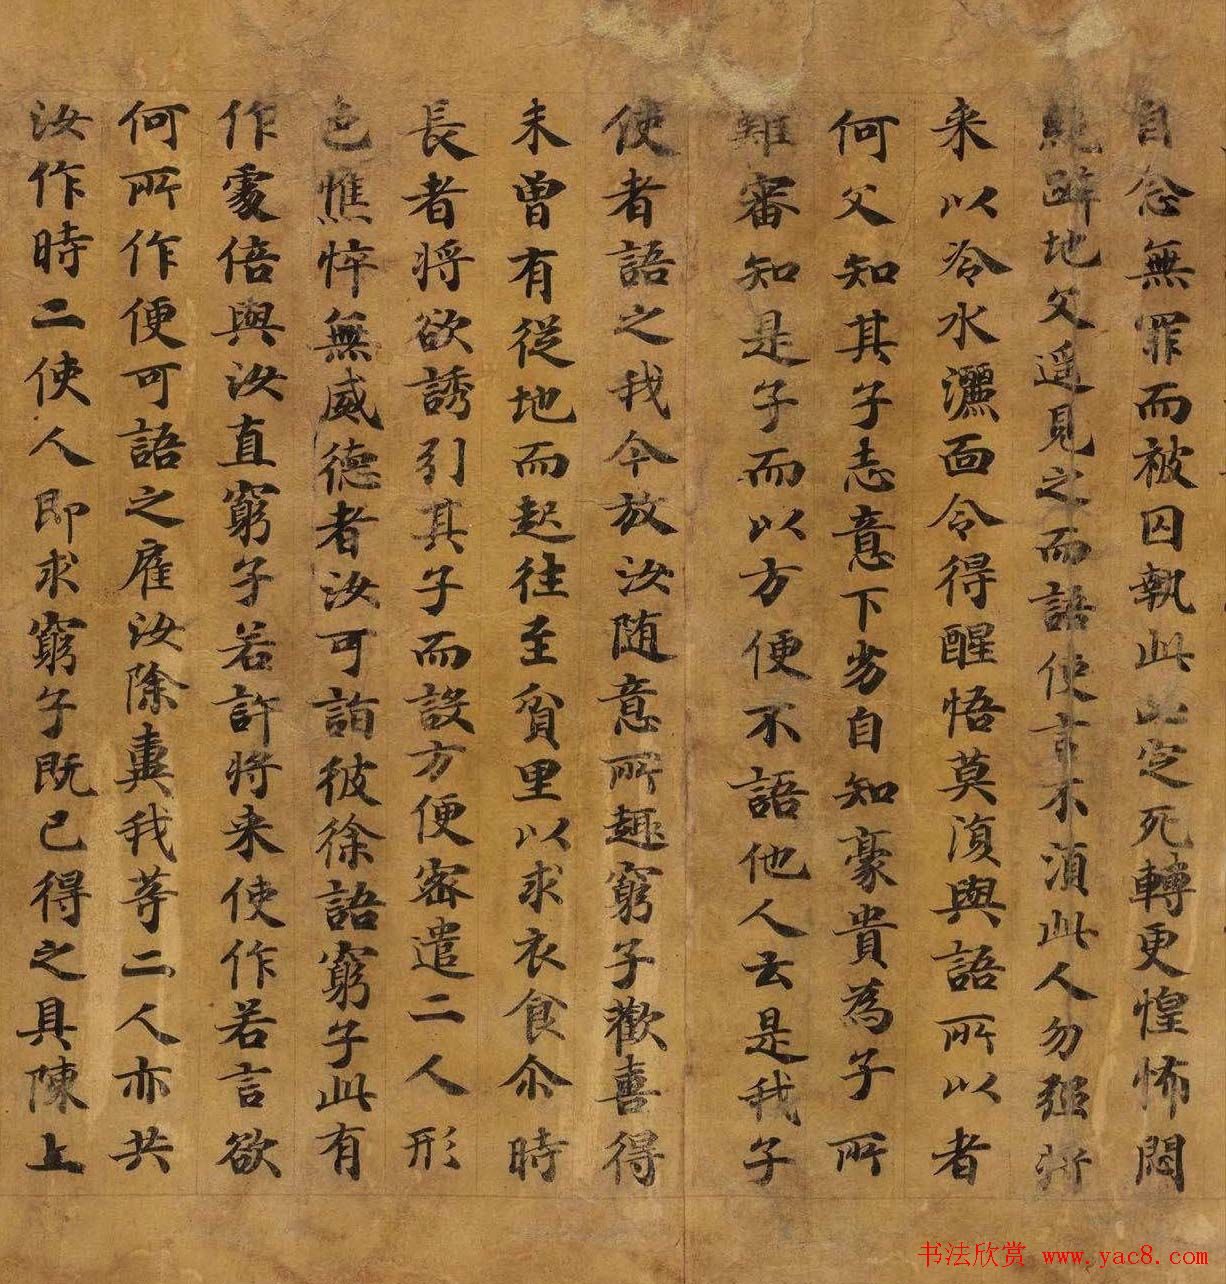 自念無罪而被囚執此必定死轉更惶怖悶
絕躃地父遥見之而語使言不須此人勿強将
来以冷水灑面令得醒悟莫復與語所以者
何父知其子志意下劣自知豪貴為子所
難審知是子而以方便不語他人云是我子
使者語之我今放汝随意所趣窮子歡喜得
未曾有從地而起往至貧里以求衣食尒時
長者将欲誘引其子而設方便密遣二人形
色憔悴無威德者汝可詣彼徐語窮子此有
作處倍與汝直窮子若許将来使作若言欲
何所作便可語之雇汝除糞我等二人亦共
汝作時二使人即求窮子既已得之具陳上
书法欣赏 www.yac8.com